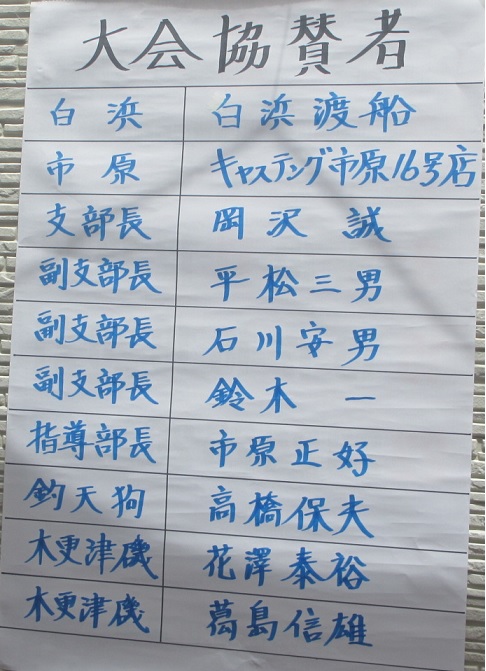 大会協賛者
白浜 白浜渡船
市原 キャスティング市原16号店
支部長 岡沢 誠
副支部長 平松三男
副支部長 石川安男
副支部長 鈴木 一
指導部長 市原正好
釣天狗 高橋保夫
木更津磯 花澤泰裕
木更津磯 葛島信雄